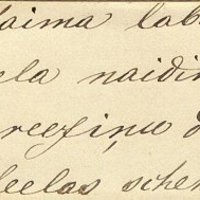 laima lab
ela naidin
reeziņu d
leelas scher